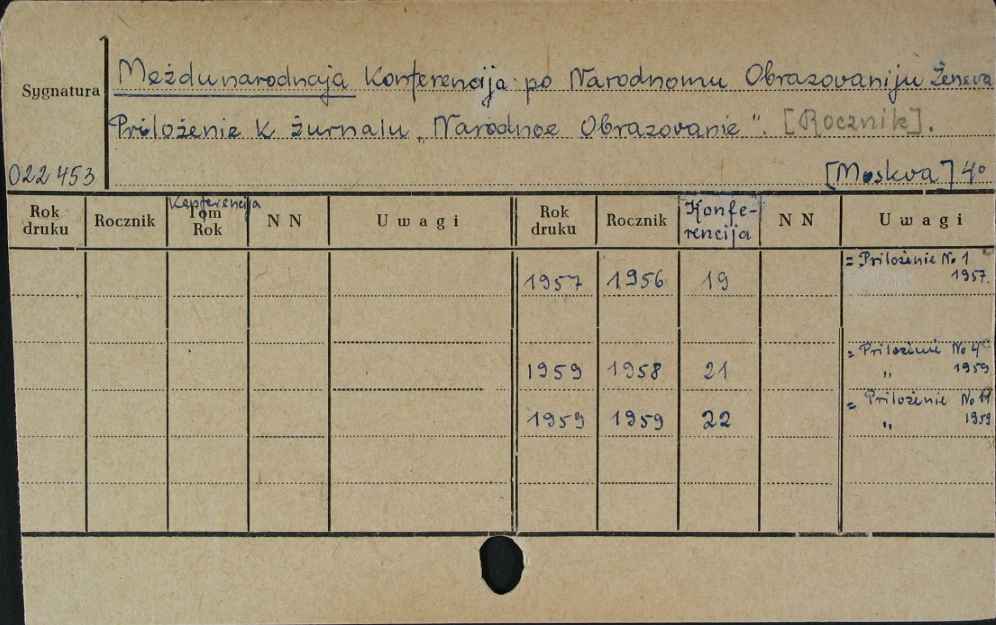 Meżdunarodnaja Konferencija po Narodnomu Obrazovaniju Żeneva
Sygnatura
Priłożenie k żurnalu „Narodnoe Obrazovanie". [Rocznik].
022453 [Moskva] 4°
Rok druku Rocznik Konferencija Tom Rok N N Uwagi Rok druku Rocznik Konferencija N N Uwagi
1957 1956 19 = Priłożenie No 1 1957.
1959 1958 21 = Priłożenie No 4 „ 1959
1959 1959 22 = Priłożenie No 11 „ 1959